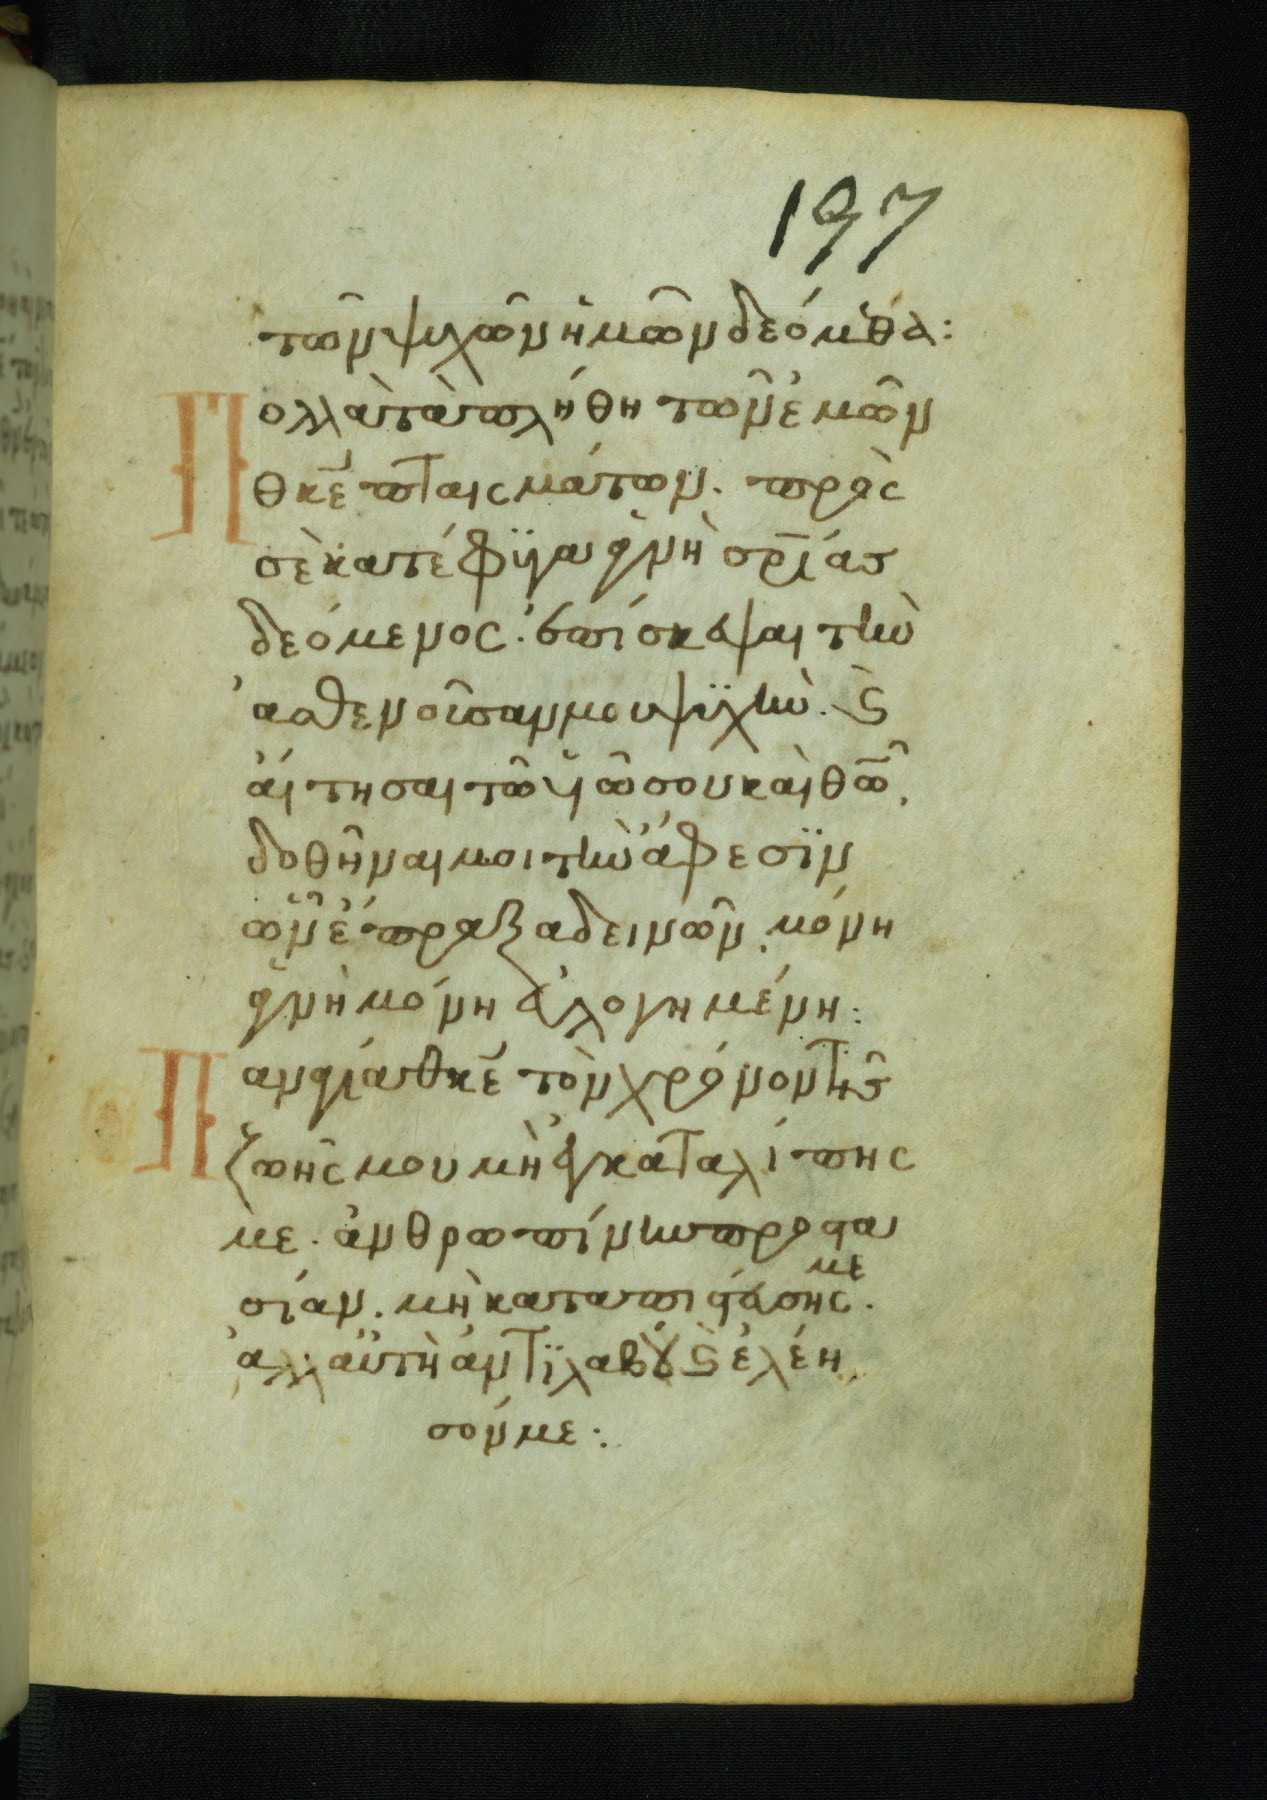 197
τῶν ψυχῶν ἡμῶν δεόμεθα:
Πολλὰ τὰ πλήθη τῶν ἐμῶν
θκε πταισμάτων. πρὸς
σὲ κατέφϋγα ἁγνὴ σρίας
δεόμενος. ἐπίσκεψαι τὴν
ἀσθενοῦσαν μου ψϋχὴν. ϛ̀
αἴτησαι τῶ υἱῶ σου καὶ θῶ,
δοθῆναι μοι τὴν ἄφεσϊν
ὧν ἔπραξα δεινῶν, μόνη
ἁγνὴ μόνη εὐλογημένη:
Παναγία θκε τὸν χρόνον τῆς
ζωῆς μου μὴ ἐγκαταλίπης
με. ἀνθρωπίνην προστα
σίαν. μὴ καταπιστεύσης με.
ἀλλ' αὐτὴ ἀντϊλαβοῦ ϛ̀ ἐλέη
σόν με: